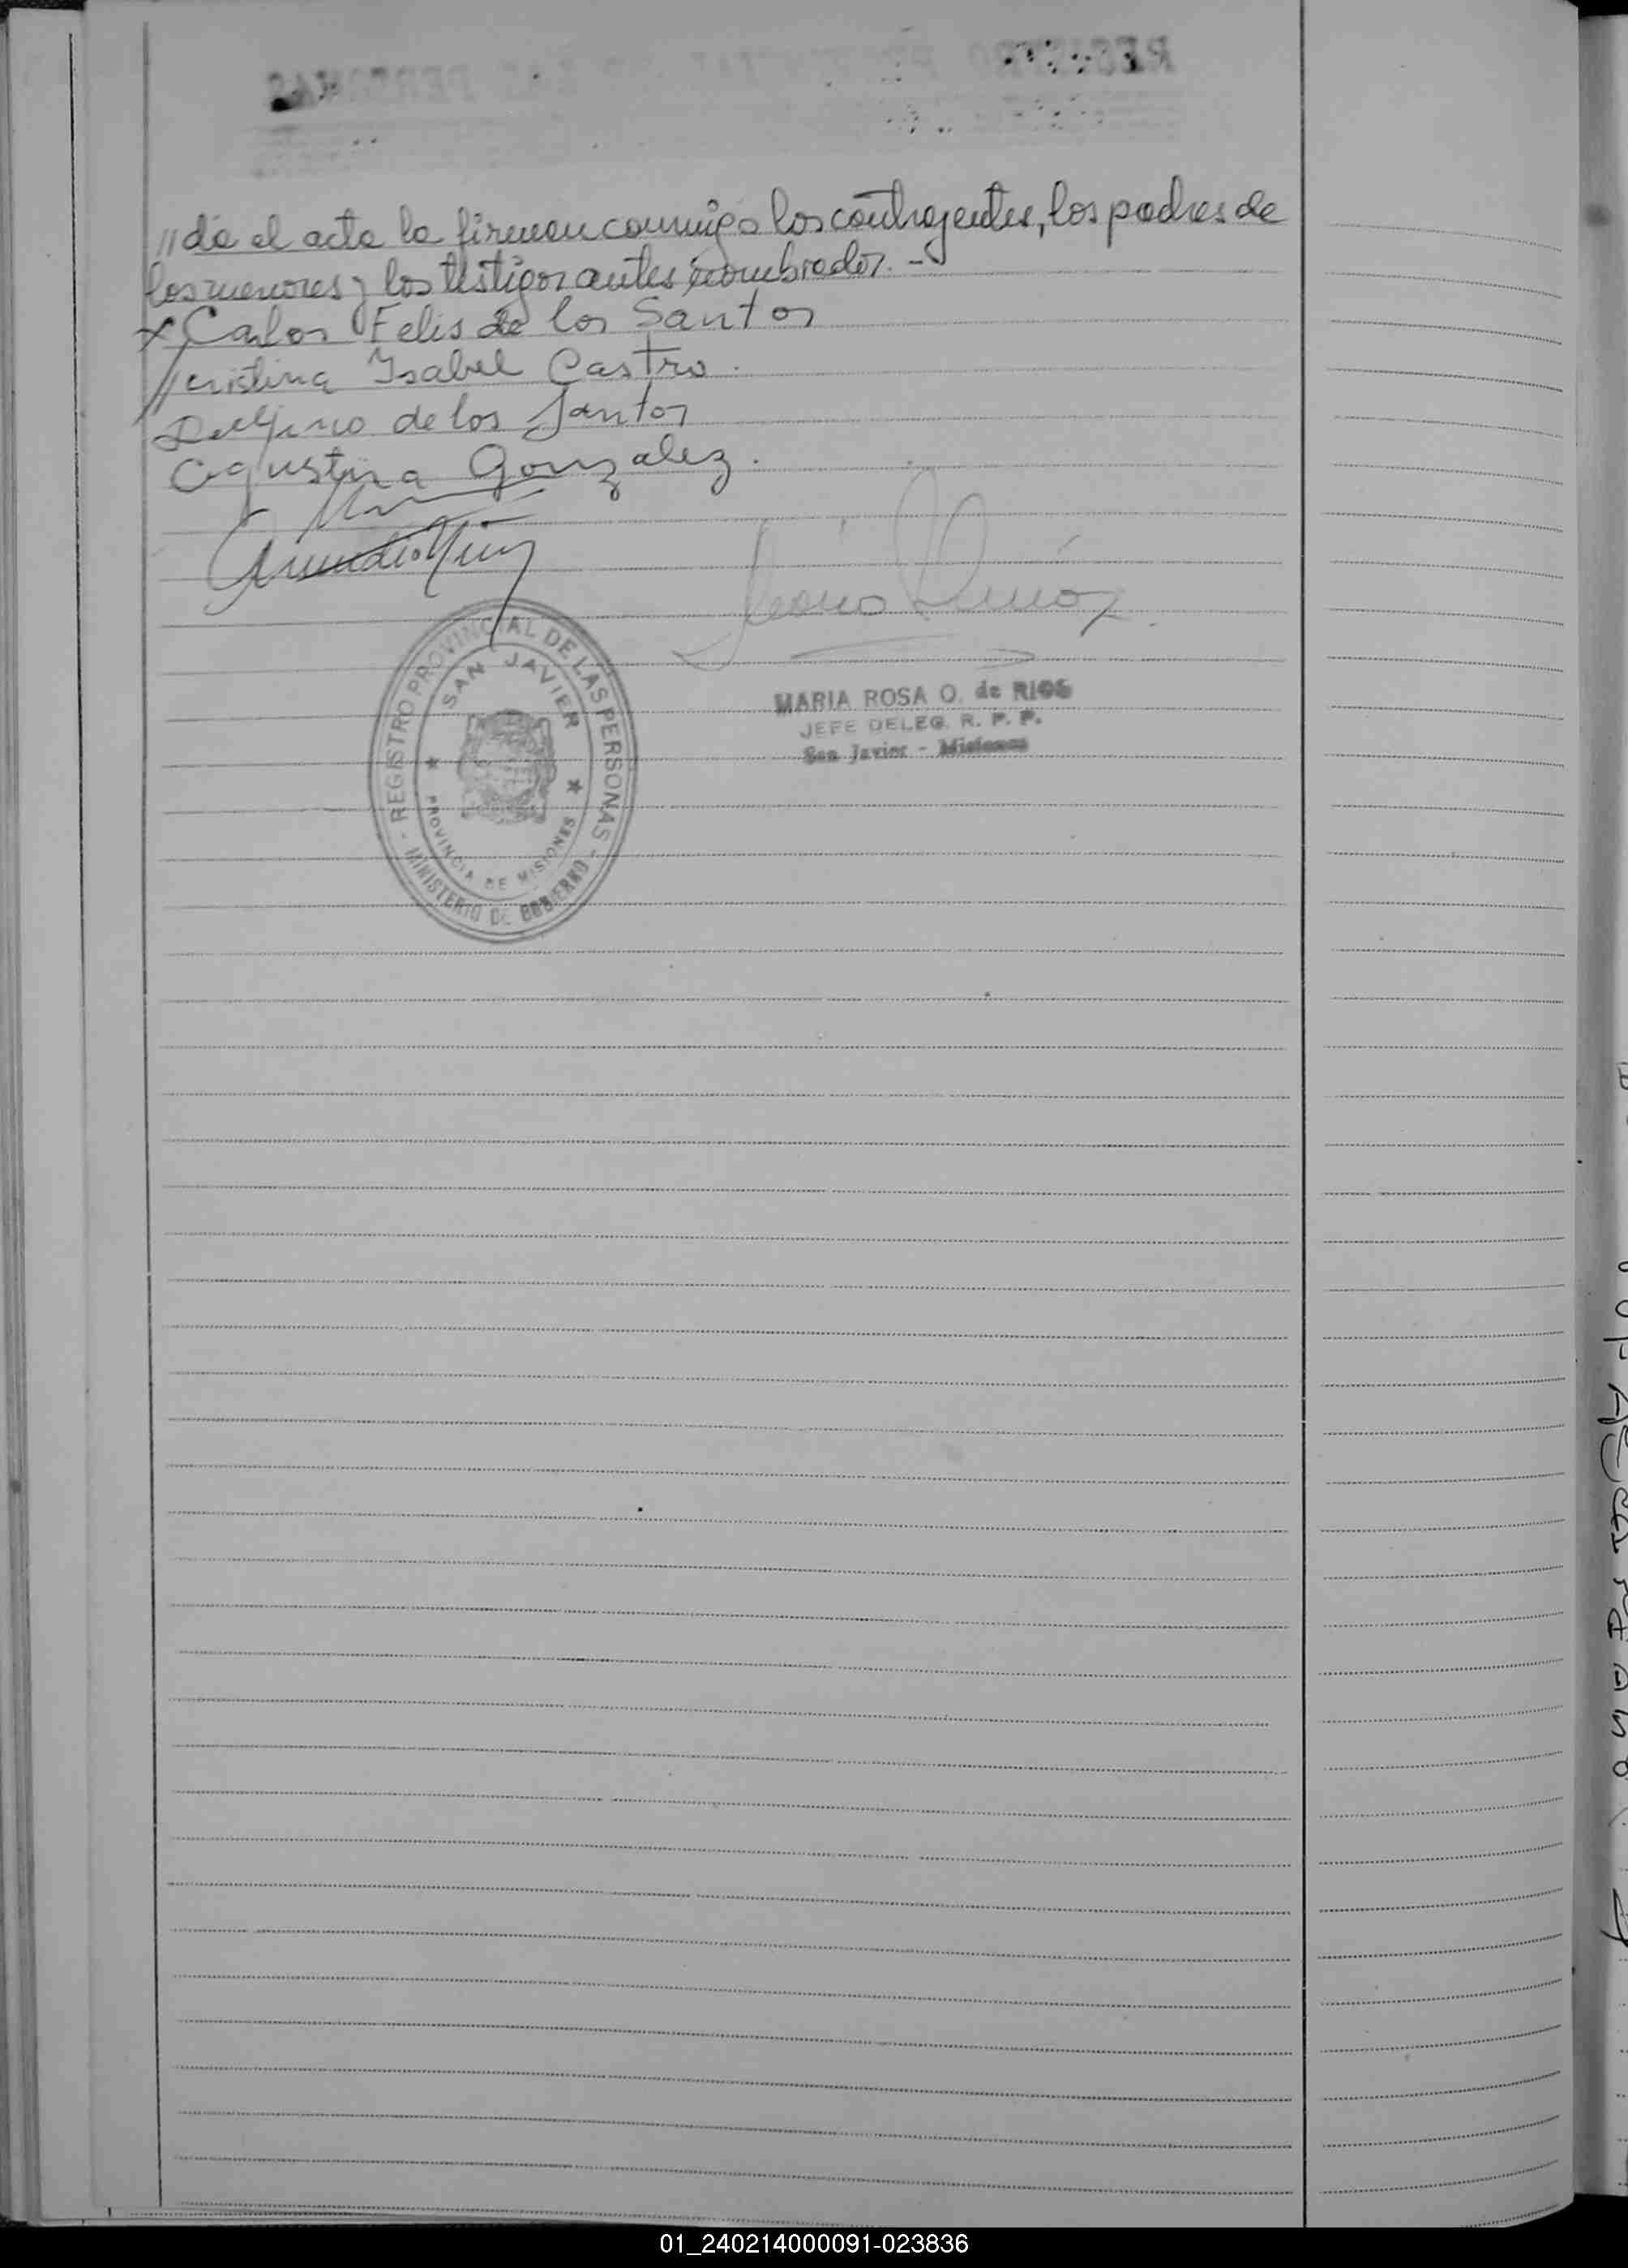 //da el acta la firman conmigo los contrayentes, los padres de
los menores y los testigos antes nombrados.-
x Carlos Felis de los Santos
cristina Isabel Castro.
Delfino de los Santos
Agustina Gonzalez.
REGISTRO PROVINCIAL DE LAS PERSONAS
SAN JAVIER
PROVINCIA DE MISIONES
MINISTERIO DE GOBIERNO
MARIA ROSA O. de RIOS
JEFE DELEG. R. P. P.
San Javier - Misiones
01_240214000091-023836